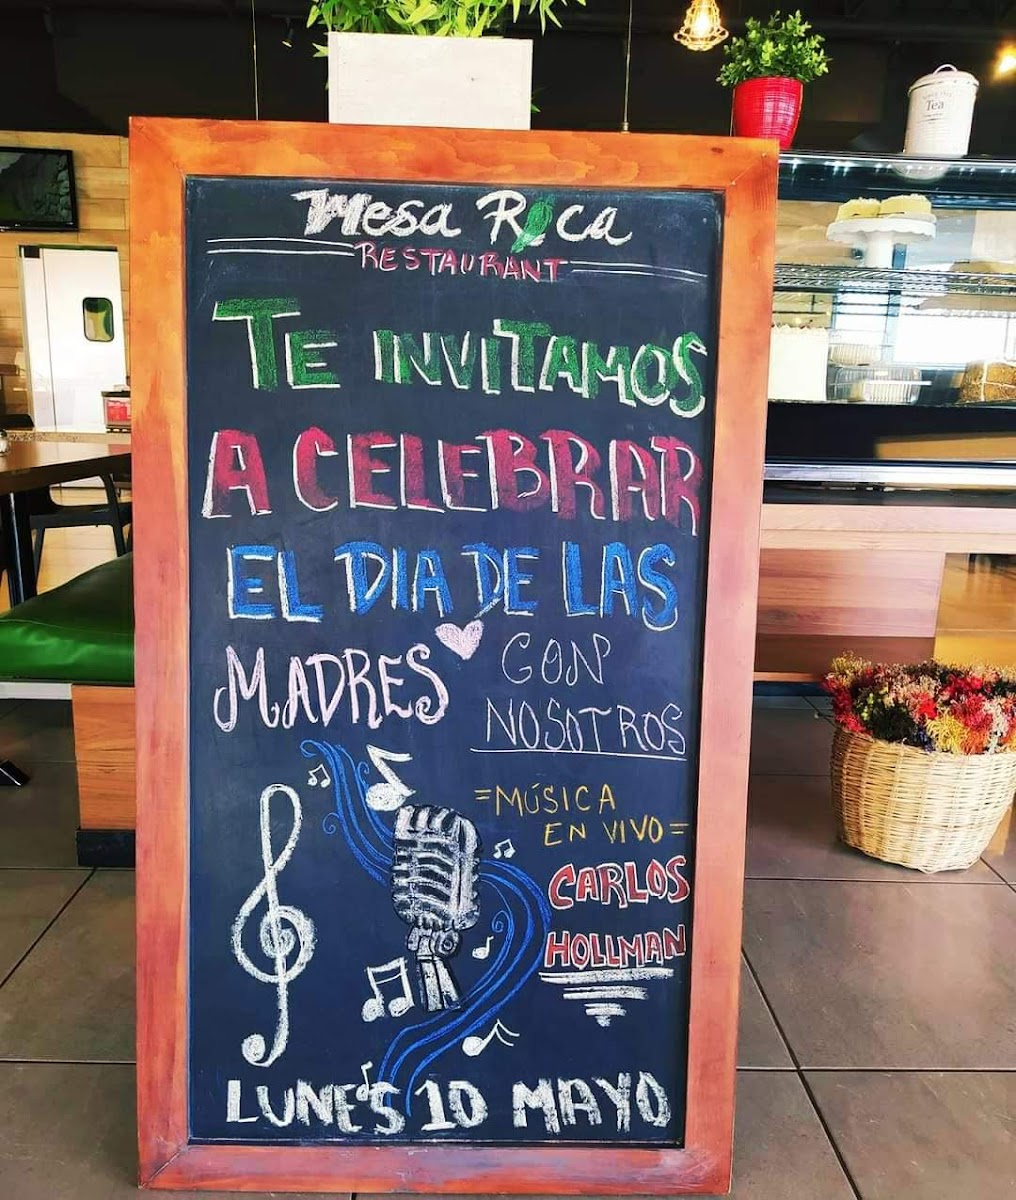 Mesa Rica
RESTAURANT
TE INVITAMOS
A CELEBRAR
EL DIA DE LAS
MADRES
CON
NOSOTROS
=MÚSICA
EN VIVO=
CARLOS
HOLLMAN
LUNES 10 MAYO
Tea